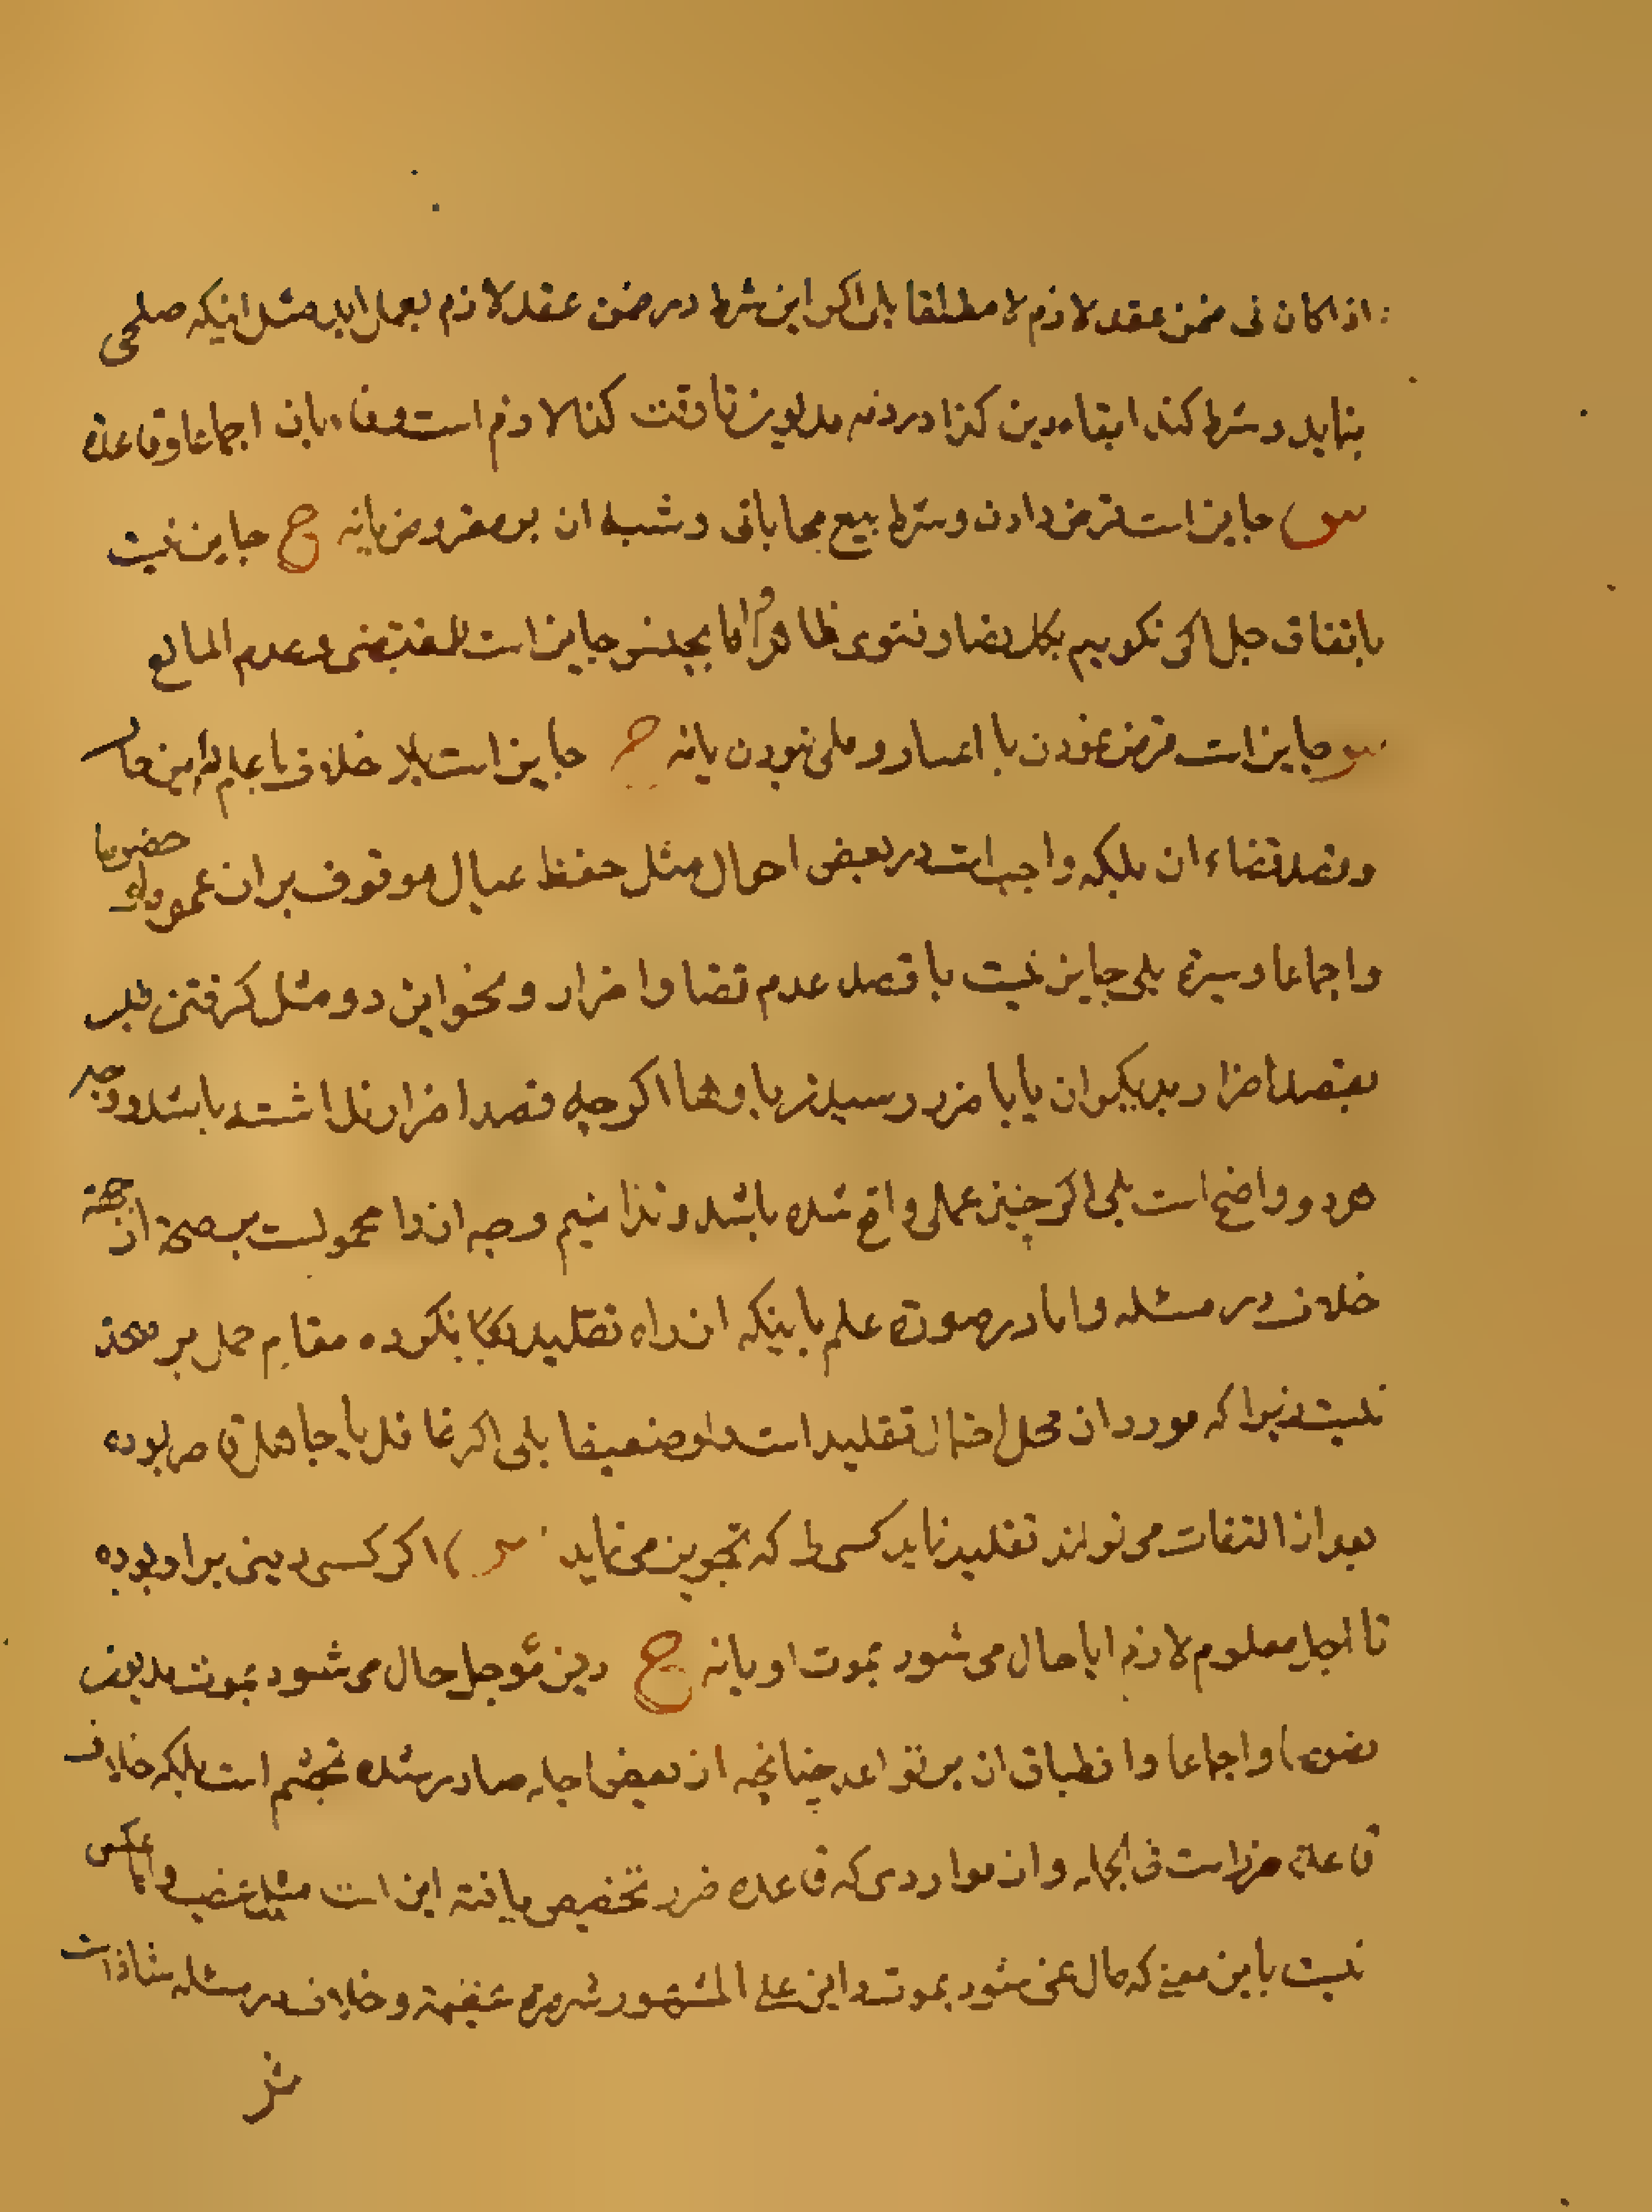 اذا کان فی ضمن عقد لازم لا مطلقا بلی اکر این شرط در ضمن عقد لازم بعمل اید مثل اینکه صلحی
بنماید و شرط کند ابقاء دین کذا در ذمه مدیون تا وقت کذا لازم است وفاء بان اجماعا وقاعدة
س جایز است قرض دادن و شرط بیع محاباتی و شبه ان بر مقروض یا نه ج جایز نیست
باتفاق جل اکر نکوییم بکل نصا و فتوی ظاهرا و اما بجنس جایز است للمقتضی و عدم المانع
س جایز است قرض نمودن با اعسار و ملی نبودن یا نه ج جایز است بلا خلاف با علم دائن
و قصد قضاء ان بلکه واجب است در بعض احوال مثل حفظ عیال موقوف بران عموما و خصوصا
واجماعا وسیرة بلی جایز نیست با قصد عدم قضا واضرار ونحو این دو مثل کرفتن
بقصد اضرار بدیکران یا با ضرر رسیدن باوها اکر چه قصد اضرار نداشته باشد ووجه
هر دو واضح است بلی اکر چنین عملی واقع شده باشد وندانیم وجه انرا محمولست بر صحة از جهة
خلاف در مسئله واما در صورة علم باینکه ان راه تقلید نکرده مقام حمل بر صحة
نیست زیرا که مورد ان محل احتمال تقلید است ولو ضعیفا بلی اکر غافل یا جاهل قاصر بوده
بعد از التفات می تواند تقلید نماید کسی را که تجویز می نماید س اکر کسی دینی بر او بوده
تا اجل معلوم لازم ایا حال می شود بموت او یا نه ج دین مؤجل حال می شود بموت مدیون
نصوصا واجماعا وانطباق ان بر قواعد چنانچه از بعض اجله صادر شده تجشم است بلکه خلاف
قاعدة ضرر است فی الجمله واز مواردی که قاعده ضرر تخصیص یافته این است مثل غصب واما عکس
نیست باین معنی که حال نمی شود بموت داین علی المشهور شهرة عظیمة وخلاف در مسئله شاذ است